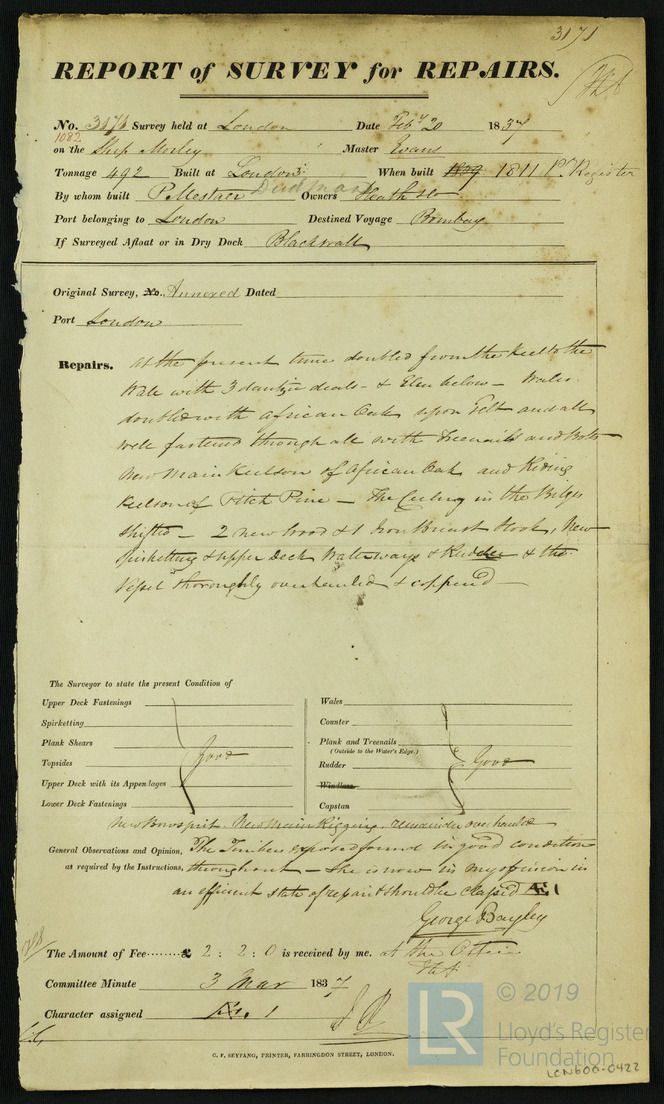 3171
REPORT of SURVEY for REPAIRS.
No. 3171 Survey held at London Date Feby 20 1837
1082
on the Ship Morley Master Evans
Tonnage 492 Built at London When built 1829 1811 Pr. Register
By whom built P. Mestaer Deadman Owners Heath & Co
Port belonging to London Destined Voyage Bombay
If Surveyed Afloat or in Dry Dock Blackwall
Original Survey, No. Annexed Dated
Port London
Repairs. At the present time doubled from the Keel to the
Wale with 3 dantzic deals & Elm below - Wales
doubled with African Oak upon Felt and all
well fastened through all with Treenails and Bolts
New Main Keelson of African Oak and Riding
Keelson of Pitch Pine - The Ceiling in the Bilges
shifted - 2 new wood & 1 Iron Breast Hook, New
Spirketting & upper Deck Waterways & Rudder & the
Vessel thoroughly overhauled & copper'd
The Surveyor to state the present Condition of
Upper Deck Fastenings
Spirketting
Plank Shears
Topsides
Upper Deck with its Appendages
Lower Deck Fastenings
Good
Wales
Counter
Plank and Treenails
(Outside to the Water's Edge.)
Rudder
Windlass
Capstan
Good
New Bowsprit. New Main Rigging. remainder overhauled
General Observations and Opinion, The Timbers exposed found in good condition
as required by the Instructions, throughout - She is now in my opinion in
an efficient state of repair & should be classed Æ 1
George Bayley
The Amount of Fee £ 2 : 2 : 0 is received by me. at the Office
Committee Minute 3 Mar 1837
Character assigned Æ. 1
C. F. SEYFANG, PRINTER, FARRINGDON STREET, LONDON.
LR
© 2019
Lloyd's Register
Foundation
LON600-0422